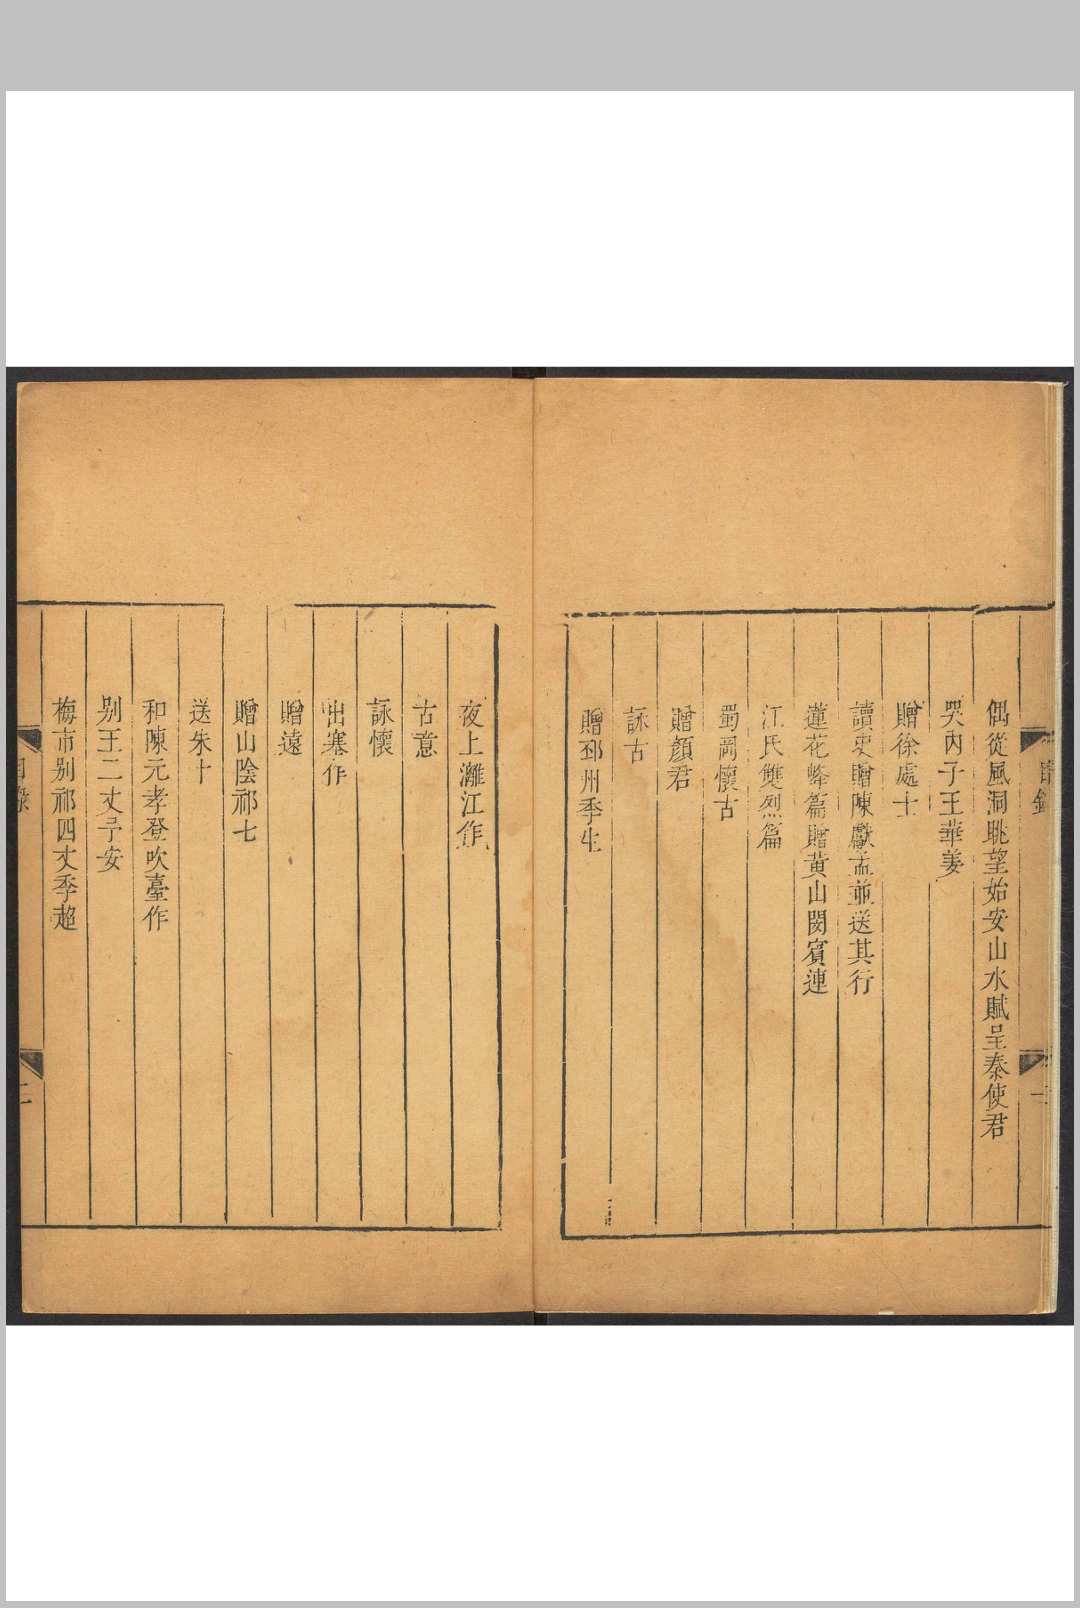 偶從風洞眺望始安山水賦呈秦使君
哭內子王華姜
贈徐處士
讀史贈陳獻孟並送其行
蓮花峰篇贈黃山閔賓連
江氏雙烈篇
蜀岡懷古
贈顏君
詠古
贈邳州季生
夜上灕江作
古意
詠懷
出塞作
贈遠
贈山陰祁七
送朱十
和陳元孝登吹臺作
别王二丈予安
梅市别祁四丈季超
目錄
二